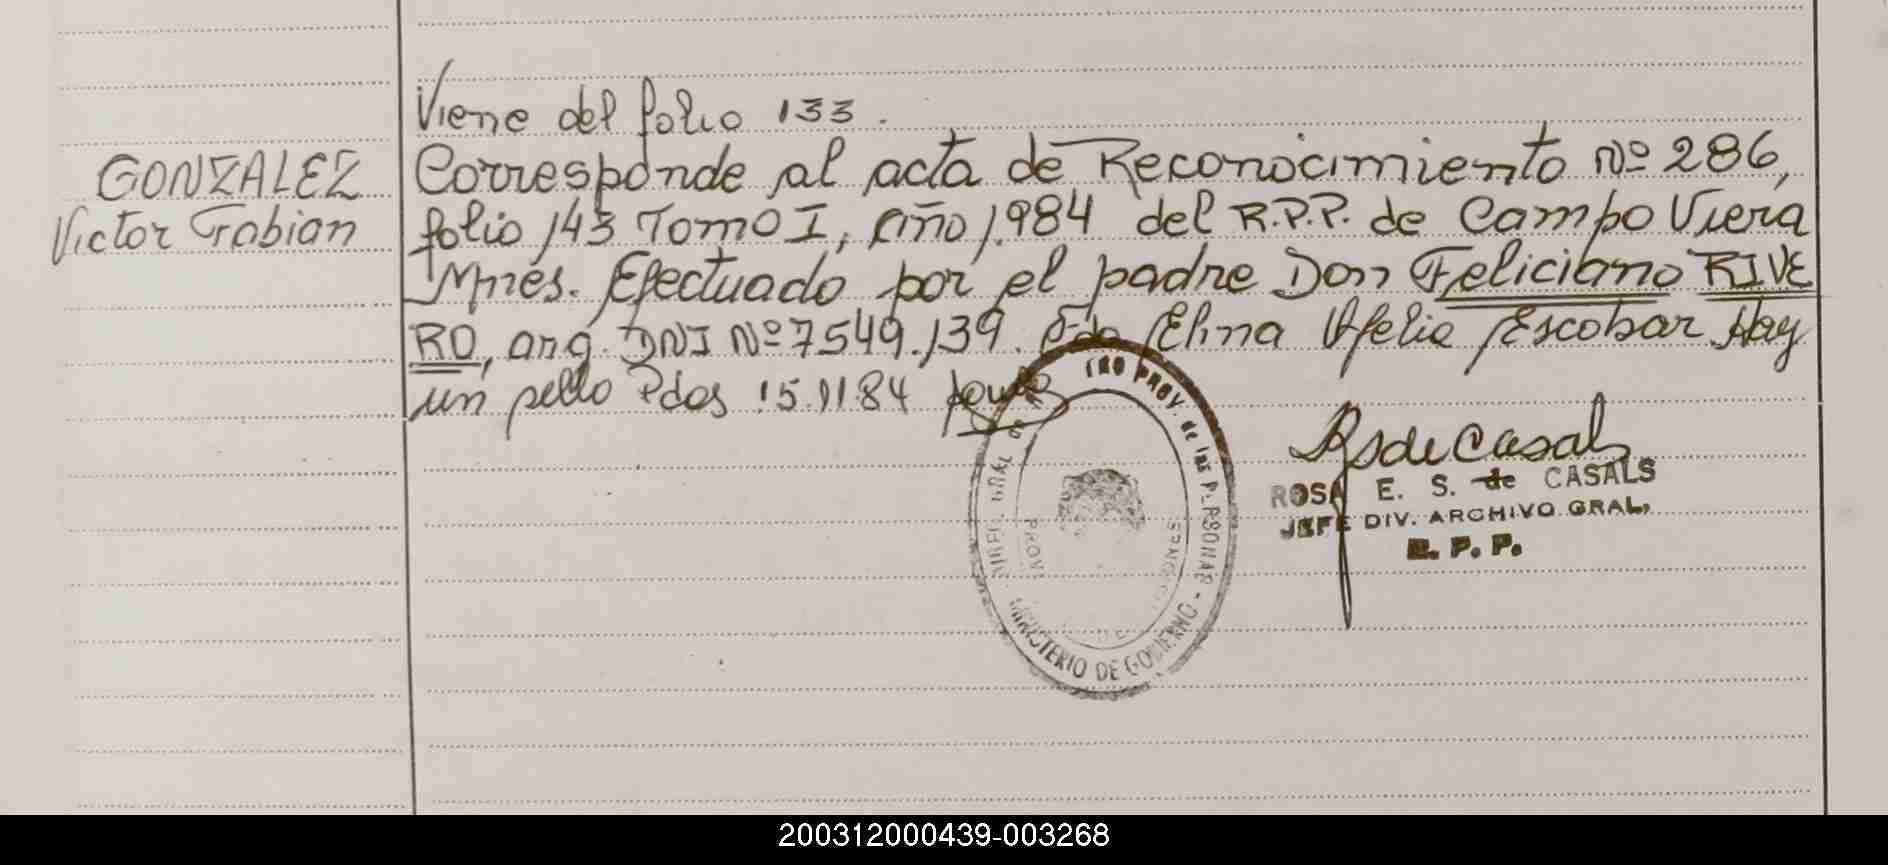 Viene del folio 133.
GONZALEZ
Victor Fabian
Corresponde al acta de Reconocimiento Nº 286,
folio 143 Tomo I, año 1.984 del R.P.P. de Campo Viera
Mnes. Efectuado por el padre Don Feliciano RIVE
RO, arg. DNI Nº 7549.139. Fdo Elina Ofelia Escobar Hay
un sello Pdas 15.11.84
RSdeCasals
ROSA E. S. de CASALS
JEFE DIV. ARCHIVO GRAL,
R. P. P.
TRO PROV. de las PERSONAS - MINISTERIO DE GOBIERNO
200312000439-003268